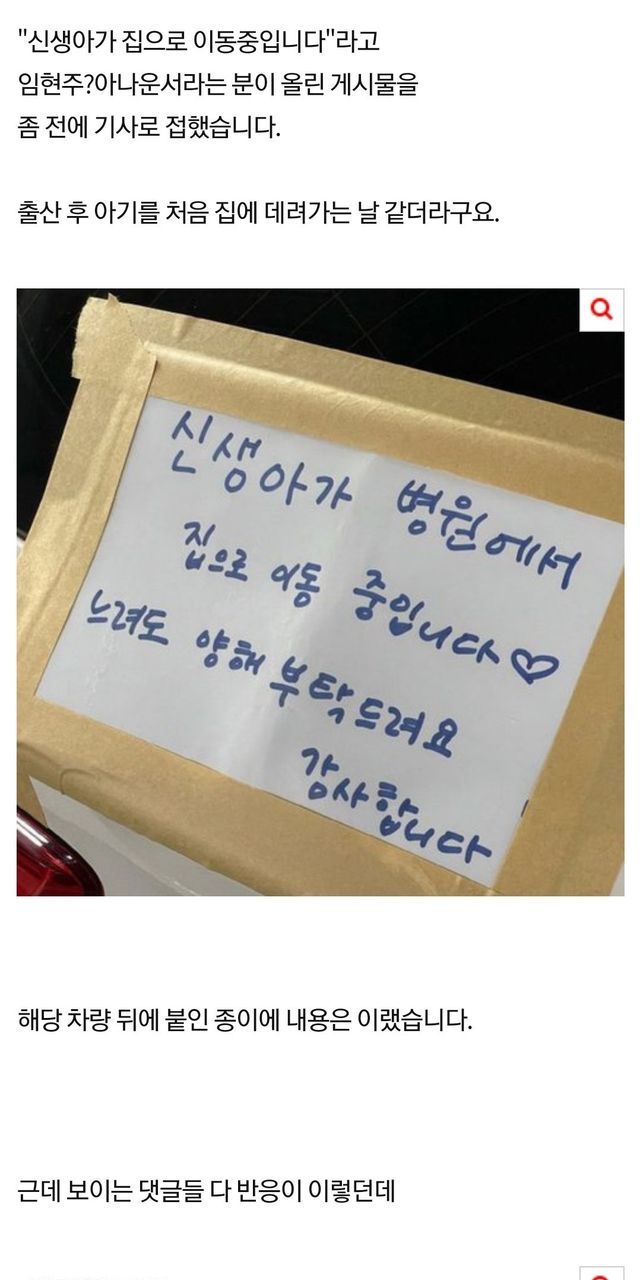 "신생아가 집으로 이동중입니다"라고
임현주?아나운서라는 분이 올린 게시물을
좀 전에 기사로 접했습니다.
출산 후 아기를 처음 집에 데려가는 날 같더라구요.
신생아가 병원에서
집으로 이동 중입니다♡
느려도 양해 부탁드려요
감사합니다
해당 차량 뒤에 붙인 종이에 내용은 이랬습니다.
근데 보이는 댓글들 다 반응이 이렇던데